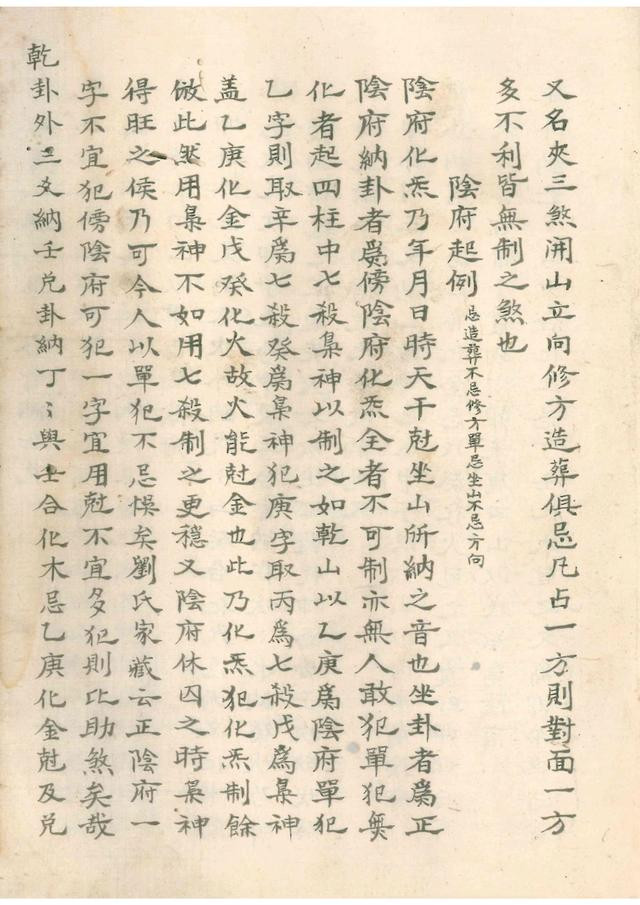 又名夾三煞開山立向修方造葬俱忌凡占一方則對面一方
多不利皆無制之煞也
陰府起例 忌造葬不忌修方單忌坐山不忌方向
陰府化炁乃年月日時天干尅坐山所納之音也坐卦者爲正
陰府納卦者爲傍陰府化炁全者不可制亦無人敢犯單犯無
化者起四柱中七殺梟神以制之如乾山以乙庚爲陰府單犯
乙字則取辛爲七殺癸爲梟神犯庚字取丙爲七殺戊爲梟神
盖乙庚化金戊癸化火故火能尅金也此乃化炁犯化炁制餘
倣此然用梟神不如用七殺制之更穩又陰府休囚之時梟神
得旺之候乃可今人以單犯不忌悮矣劉氏家藏云正陰府一
字不宜犯傍陰府可犯一字宜用尅不宜多犯則比助煞矣哉
乾卦外三爻納壬兌卦納丁〻與壬合化木忌乙庚化金尅及兌